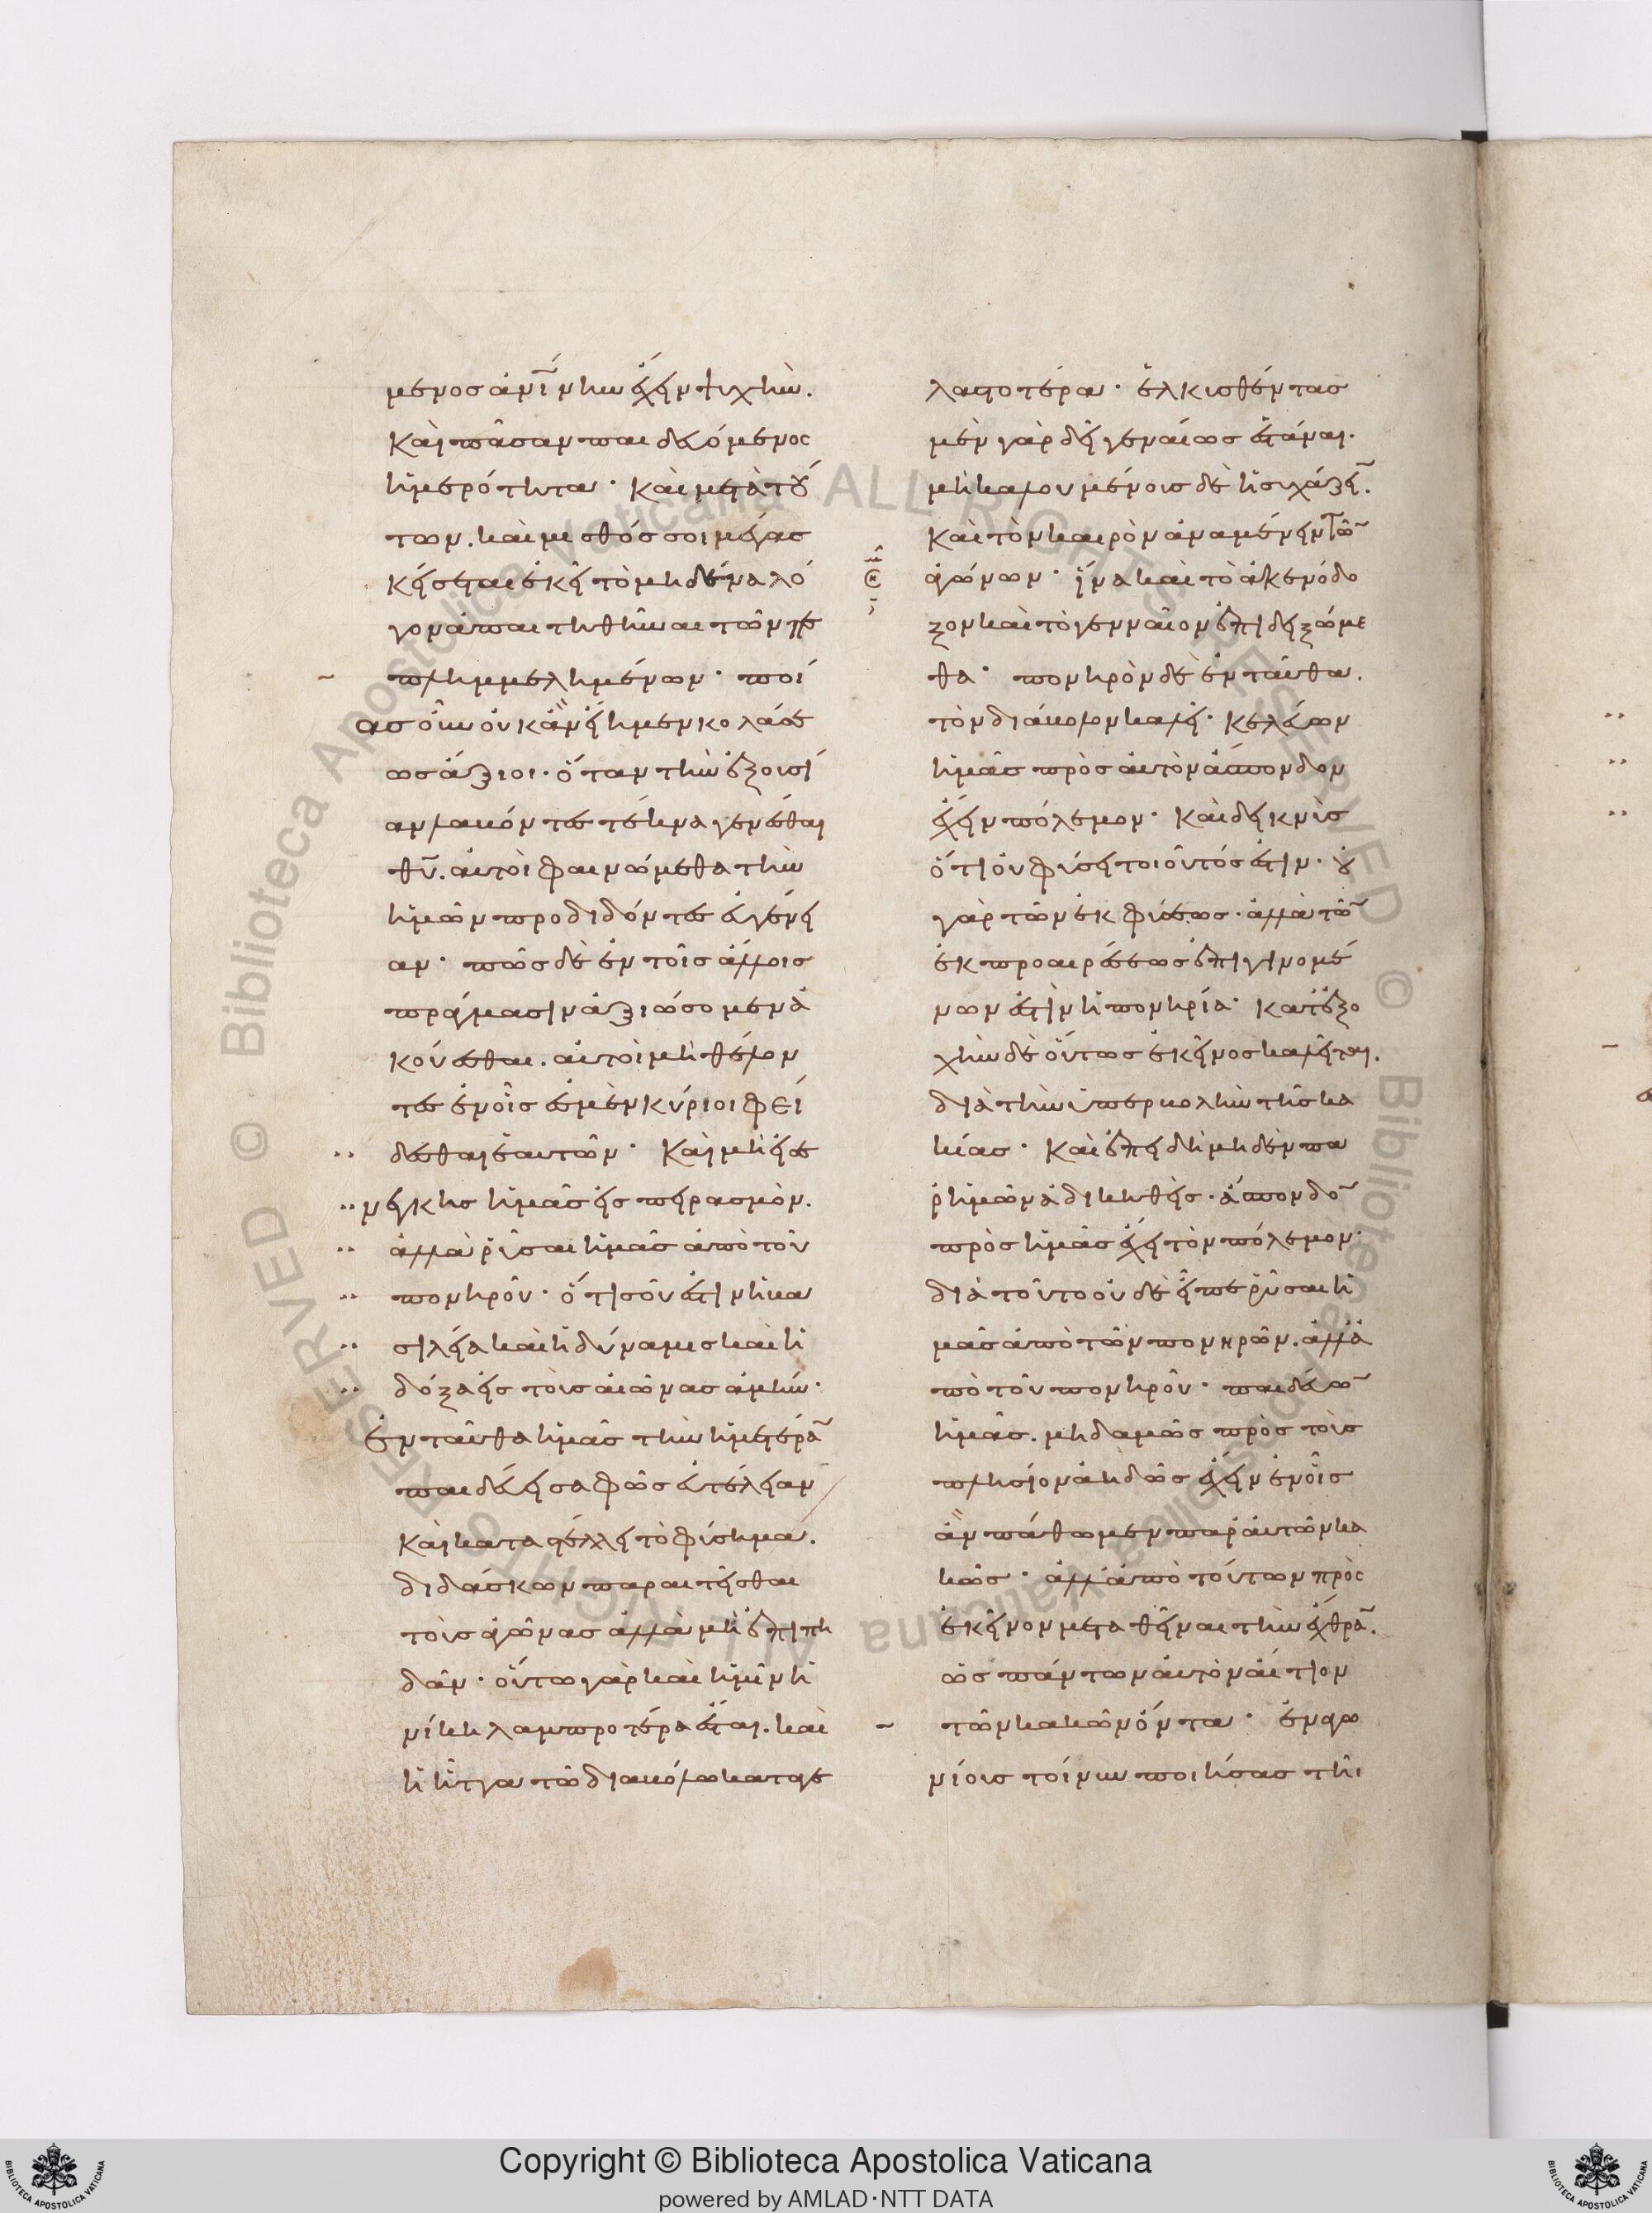 μενος ἀνῖν τὴν ἔχειν ψυχήν.
καὶ πᾶσαν παιδευόμενος
ἡμερότητα· καὶ μετὰ τού
των. καὶ μισθός σοι μέγας
κείσεται ἐκεῖ τὸ μηδένα λό
γον ἀπαιτηθῆναι τῶν πε
πλημμελημένων· ποί
ας οὖν οὐκ ἂν εἴημεν κολάσε
ως ἄξιοι· ὅταν τὴν ἐξουσί
αν λαβόντες τέκνα γενέσθαι
θυ. αὐτοὶ φαινώμεθα τὴν
ἡμῶν προδιδόντες εὐγένει
αν· πῶς δὲ ἐν τοῖς ἄλλοις
πράγμασιν ἀξιώσομεν ἀ
κούεσθαι. αὐτοὶ μὴ θέλον
τες ἐν οἷς ἐσμὲν κύριοι φεί
δεσθαι ἑαυτῶν· καὶ μὴ εἰσε
νέγκῃς ἡμᾶς εἰς πειρασμόν.
ἀλλὰ ῥῦσαι ἡμᾶς ἀπὸ τοῦ
πονηροῦ· ὅτι σοῦ ἐστιν ἡ βα
σιλεία καὶ ἡ δύναμις καὶ ἡ
δόξα εἰς τοὺς αἰῶνας ἀμήν·
Ἐνταῦθα ἡμᾶς τὴν ἡμετέρᾱ
παιδεύει σαφῶς εὐτέλειαν
καὶ καταστέλλει τὸ φύσημα.
διδάσκων παραιτεῖσθαι
τοὺς ἀγῶνας ἀλλὰ μὴ ἐπιπη
δᾶν· οὕτω γὰρ καὶ ἡμῖν ἡ
νίκη λαμπροτέρα ἔσται. καὶ
ἡ ἧττα τῶ διαβόλω καταγε
λαστοτέρα· ἑλκυσθέντας
μὲν γὰρ δεῖ γενναίως ἑστάναι.
μὴ καλουμένους δὲ ἡσυχάζειν.
καὶ τὸν καιρὸν ἀναμένειν τῶ
ἀγώνων· ἵνα καὶ τὸ ἀκενόδο
ξον καὶ τὸ γενναῖον ἐπιδειξώμε
θα· πονηρὸν δὲ ἐνταῦθα.
τὸν διάβολον καλεῖ. κελεύων
ἡμᾶς πρὸς αὐτὸν ἄσπονδον
ἔχειν πόλεμον· καὶ δεικνὺς
ὅτι οὐ φύσει τοιοῦτός ἐστιν. οὐ
γὰρ τῶν ἐκ φύσεως. ἀλλὰ τῶ
ἐκ προαιρέσεως ἐπιγινομέ
νων ἐστὶν ἡ πονηρία· κατ' ἐξο
χὴν δὲ οὕτως ἐκεῖνος καλεῖται.
διὰ τὴν ὑπερβολὴν τῆς κα
κίας· καὶ ἐπειδὴ μηδὲν πα
ρ' ἡμῶν ἀδικηθεὶς. ἄσπονδο
πρὸς ἡμᾶς ἔχει τὸν πόλεμον·
διὰ τοῦτο οὐδὲ εἶπε ῥῦσαι ἡ
μᾶς ἀπὸ τῶν πονηρῶν. ἀλλ' ἀ
πὸ τοῦ πονηροῦ· παιδεύω
ἡμᾶς. μηδαμῶς πρὸς τοὺς
πλησίον ἀηδῶς ἔχειν ἐν οἷς
ἂν πάθωμεν παρ' αὐτῶν κα
κῶς· ἀλλ' ἀπὸ τούτων πρὸς
ἐκεῖνον μεταθεῖναι τὴν ἔχθρᾱ.
ὡς πάντων αὐτὸν αἴτιον
τῶν κακῶν ὄντα· ἐναγω
νίους τοίνυν ποιήσας τῆι